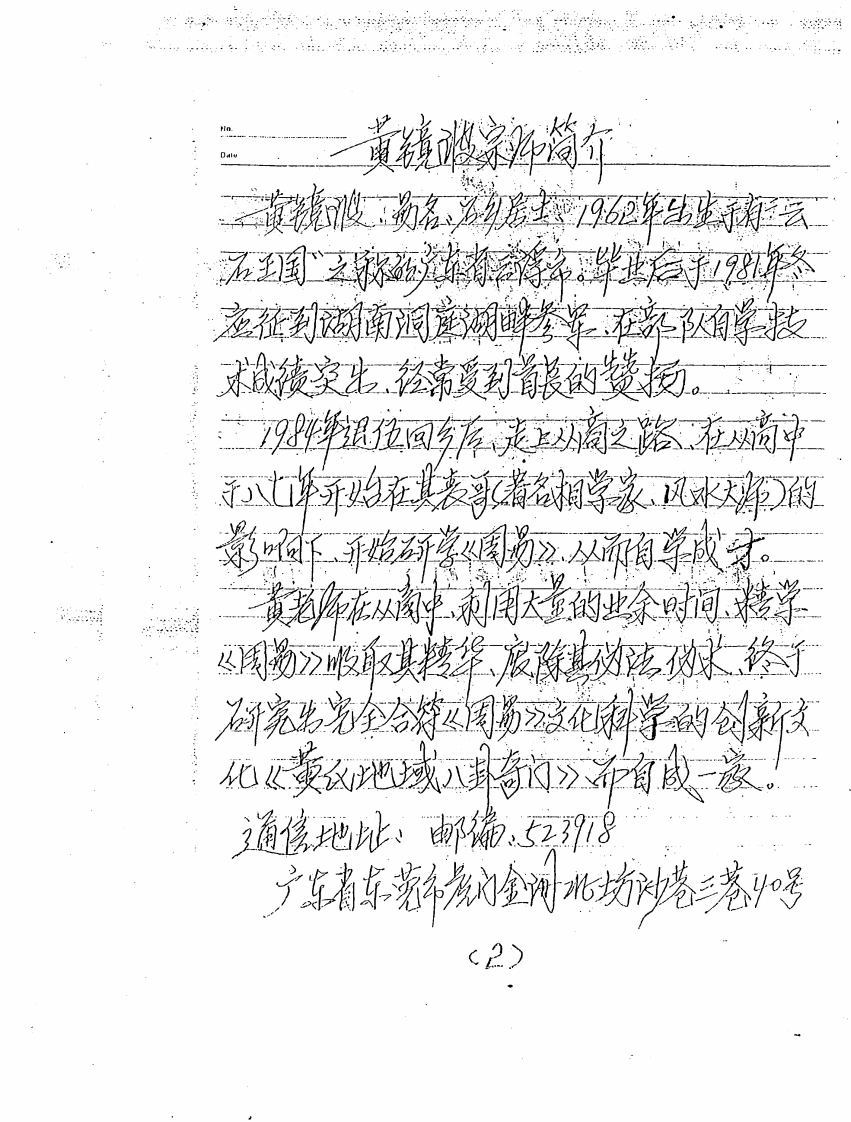 No.
Date
黄镜波宗师简介
黄镜波、易名、石乡居士、1962年出生于有"云
石王国"之称的广东省云浮市。毕业后于1981年冬
应征到湖南洞庭湖畔参军、在部队自学技
术成绩突出、经常受到首长的赞扬。
1984年退伍回乡后、走上从商之路、在从商中
于八七年开始在其表哥(著名相学家、风水大师)的
影响下、开始研学《周易》、从而自学成才。
黄老师在从商中、利用大量的业余时间、精学
《周易》吸取其精华、废除其伪法伪术、终于
研究出完全合符《周易》文化科学的创新文
化《黄氏地域八卦奇门》、而自成一家。
通信地址: 邮编:523918
广东省东莞市虎门金洲北坊沙巷三巷40号
(2)